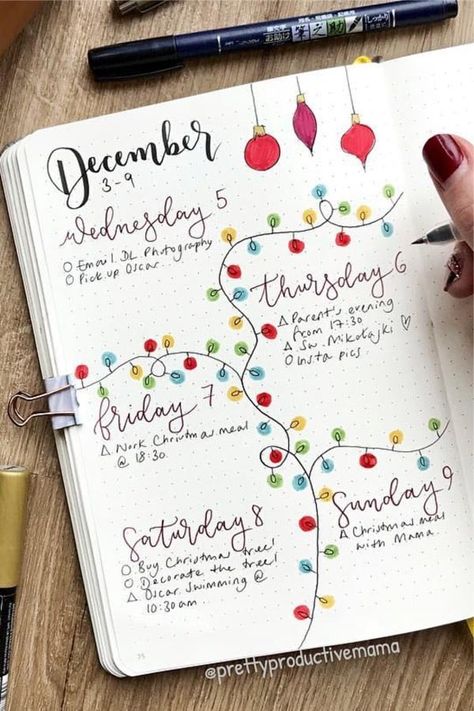 December
3-9
Wednesday 5
o Email DL Photography
o Pick up Oscar
Thursday 6
△ Parent's evening
from 17:30
△ Sw. Mikołajki ♡
o Insta pics
Friday 7
△ Work Christmas meal
@ 18:30
Saturday 8
o Buy Christmas tree!
o Decorate the tree!
△ Oscar swimming @
10:30am
Sunday 9
△ Christmas meal
with Mama
@prettyproductivemama